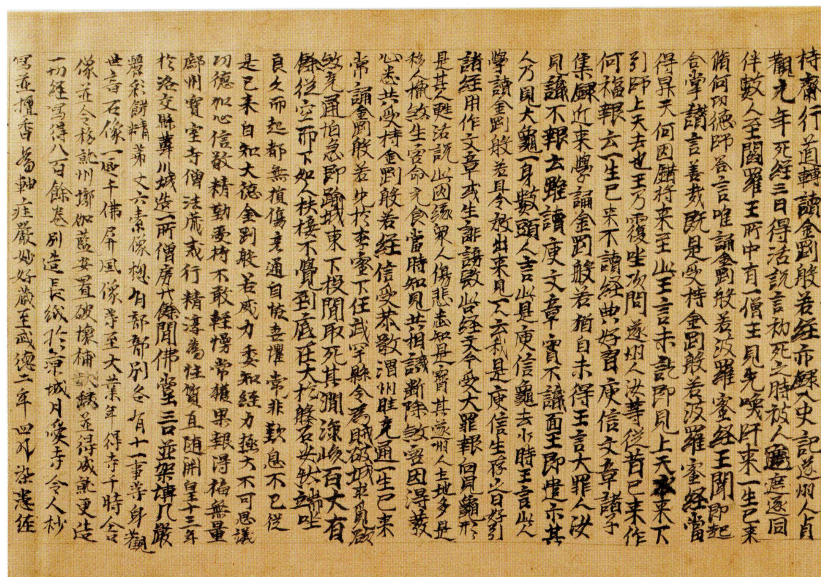 持齋行道轉讀金剛般若經亦錄入史記遂州人貞
觀元年死經三日得活說言初死之時被人遮庭逐同
伴數人至閻羅王所中有一僧王見先喚師來一生已來
脩何功德師答言唯誦金剛般若波羅蜜經王聞即起
合掌讚言善哉既是受持金剛般若波羅蜜經當
得昇天何因錯將來王此言未訖即見上天來下
引師上天去也王乃覆坐次問遂州人汝等從昔已來作
何福報云一生已來不讀經典好習庾信文章諸子
集錄近來學誦金剛般若猶自未得王言大罪人汝
見識不報云雖讀庾文章實不識面王即遣示其
人乃見大龜一身數頭人言此是庾信龜去少時王言此人
學讀金剛般若且令放出來見一人云我是庾信生存之日好引
諸經用作文章或生誹謗毀呰經文今受大罪報向見龜形
是其人甦活說此因緣眾人傷悲悉知是實其遂州之土地多是
移人獵殺生害命充食當時知見共相識斷除殺害因得發
心悉共受持金剛般若經信受恭敬渭州陸充通一生已來
常誦金剛般若
餘從空而下如人扶接不覺到底
良久而起都無損傷
是已來自知大德金剛般若威力
功德加心信敬精勤受持不敢輕慢常獲果報得福無量
鄜州寶室寺僧法藏戒行精淳為性質直隋開皇十三年
於洛交縣葦川城造一所僧房廿餘間佛堂三口並架塼瓦嚴
麗彩餝精華丈六素像總有部部別各有十一事等身觀
世音石像一區千佛屏風像等至大業年
像並令移就州墎伽藍安置破壞補缺並得成就更造
一切經寫得八百餘卷別造長紙於京城月愛寺令人抄
寫並檀香為軸莊嚴妙好藏至武德二年四